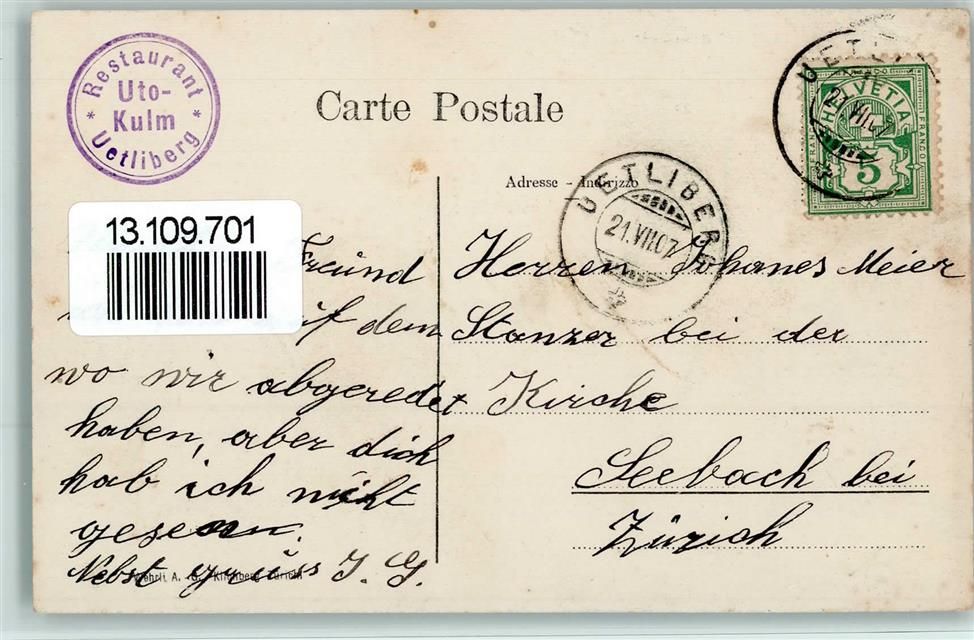 Restaurant
Uto-
Kulm
* Uetliberg *
Carte Postale
HELVETIA
FRANCO
5
UETLIBERG
21.VII.07
Adresse - Indirizzo
UETLIBERG
21.VII.07
13.109.701
Freund
auf dem
wo wir abgeredet
haben, aber dich
hab ich nicht
gesen.
Nebst gruss J. G.
Herren Johanes Meier
Stanzer bei der
Kirche
Seebach bei
Zürich
Wehrli A.-G. Kilchberg Zürich